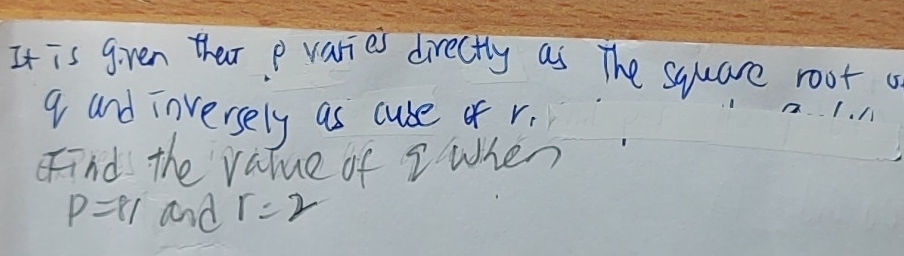 It is given that p varies directly as The square root
q and inversely as cuse of r.
Find the value of q when
p=81 and r=2